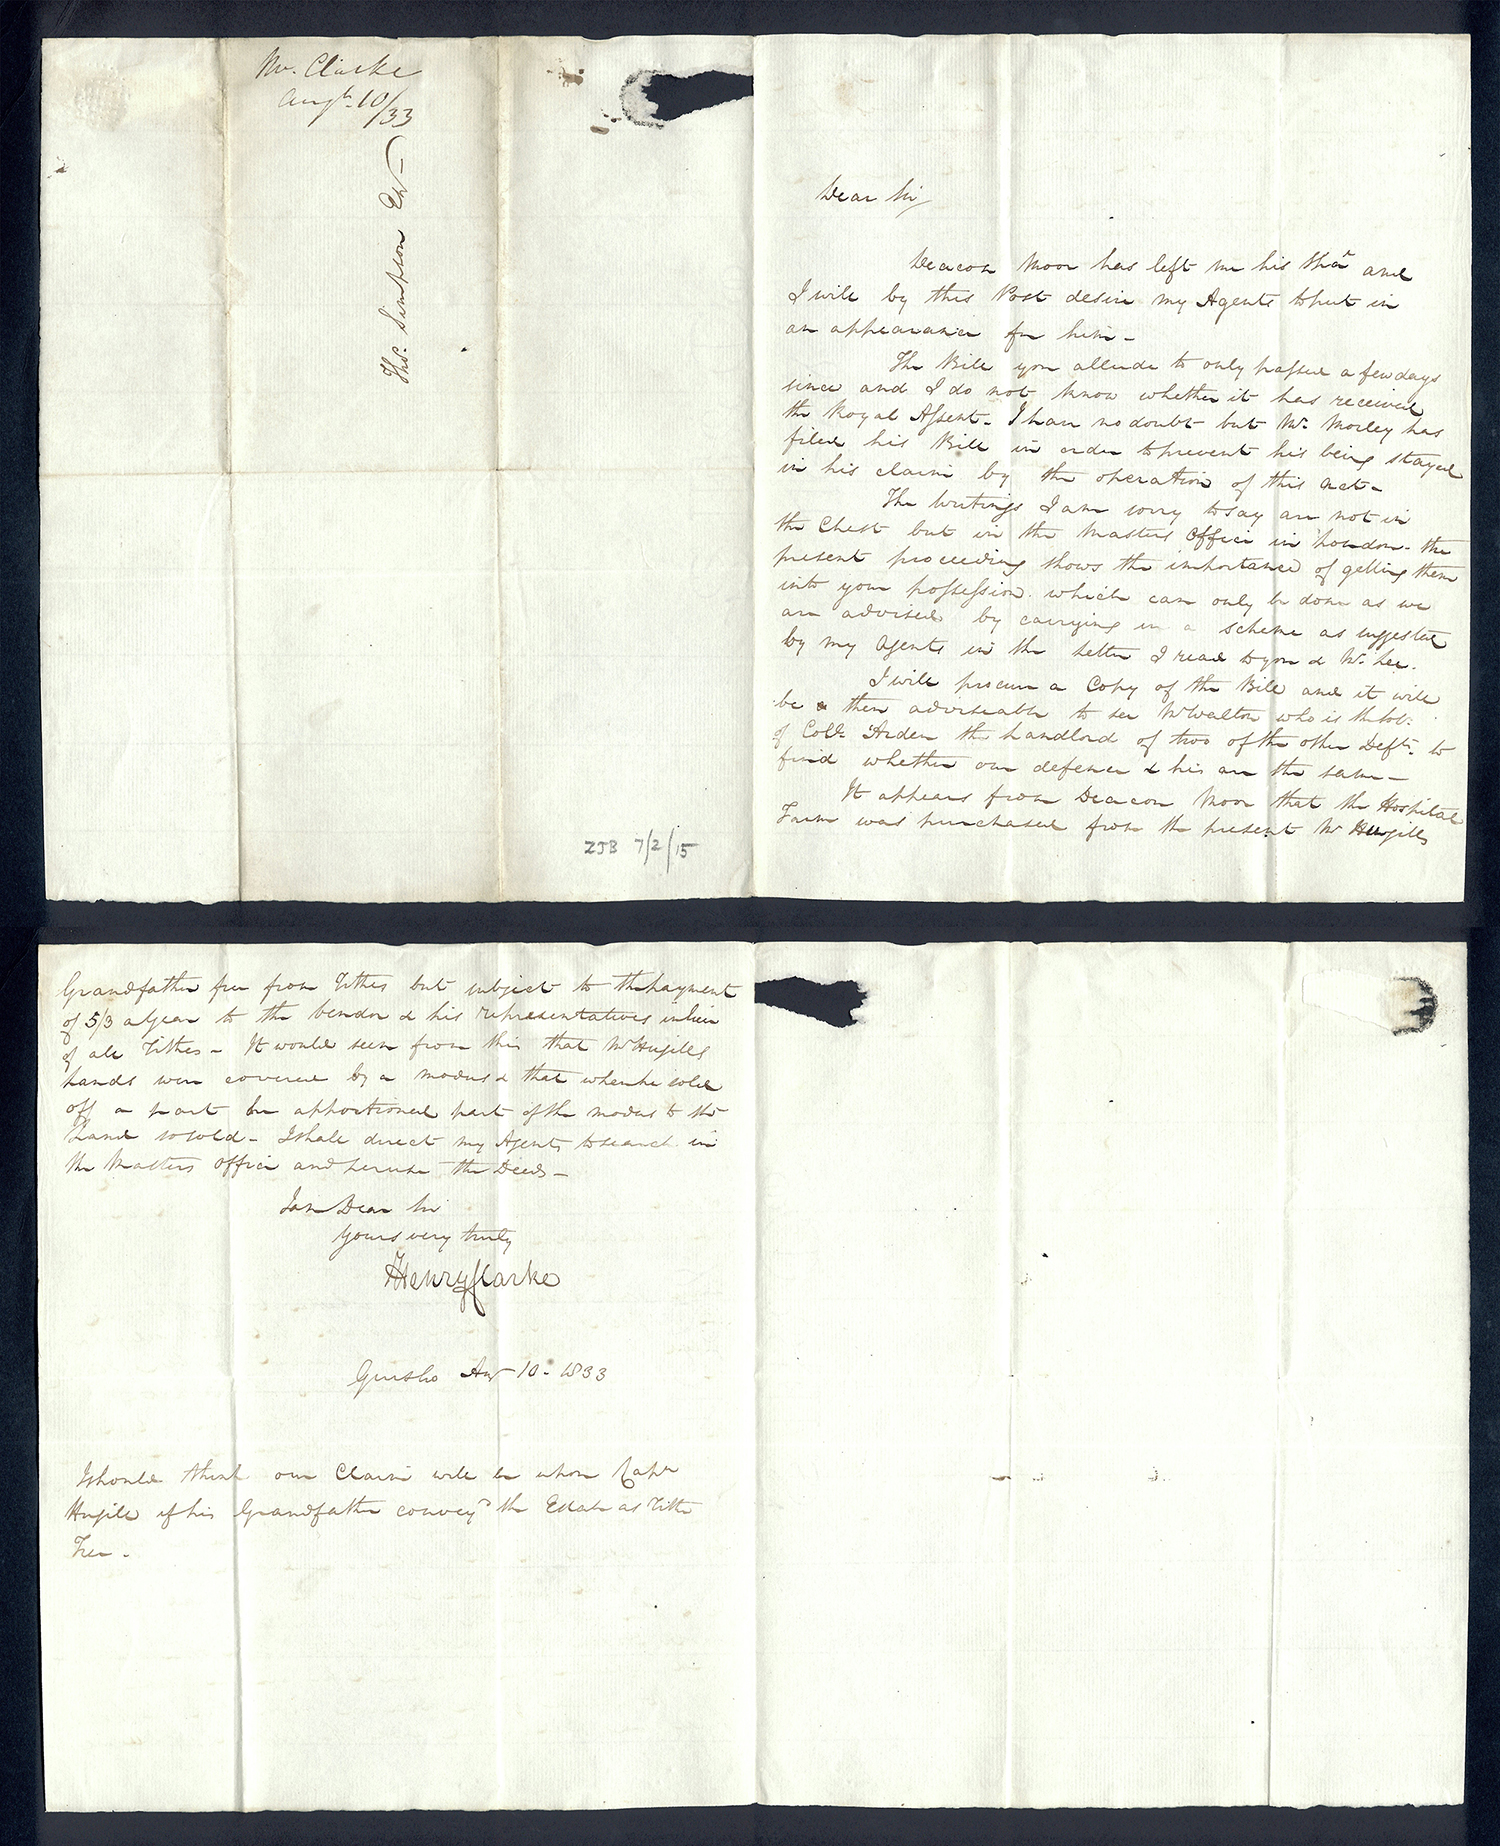 Mr. Clarke
Augt. 10/33
Thos. Simpson Esqr
ZJB 7/2/15
Dear Sir
Deacon Moor has left me his Spa and
I will by this Post desire my Agents to put in
an appearance for him -
The Bill you allude to only passed a few days
since and I do not know whether it has received
the Royal Assent. I have no doubt but Mr. Morley has
filed his Bill in order to prevent his being stayed
in his claim by the operation of this Act -
The Writings I am sorry to say are not in
the Chest but in the Masters Office in London - the
present proceeding shows the importance of getting them
into your possession. which can only be done as we
are advised by carrying in a scheme as suggested
by my Agents in the Letter I read to you & Mr. Lee.
I will procure a Copy of the Bill and it will
be then adviseable to see Mr Walton who is the Sol:
of Coll. Arden the Landlord of two of the other Defts. to
find whether our defence & his are the same -
It appears from Deacon Moor that the Hospital
Farm was purchased from the present Mr Hugills
Grandfather free from Tithes but subject to the payment
of 5/3 a Year to the Vendor & his representatives in lieu
of all Tithes - It would seem from this that Mr Hugills
Lands were covered by a modus & that when he sold
off a part he apportioned part of the modus to the
Land so sold - I shall direct my Agents to search in
the Masters Office and peruse the Deeds -
I am Dear Sir
Yours very truly
Henry Clarke
Guisbo Aug 10 - 1833
I should think our Claim will be upon Capn
Hugill if his Grandfather convey'd the Estate as Tithe
Free -